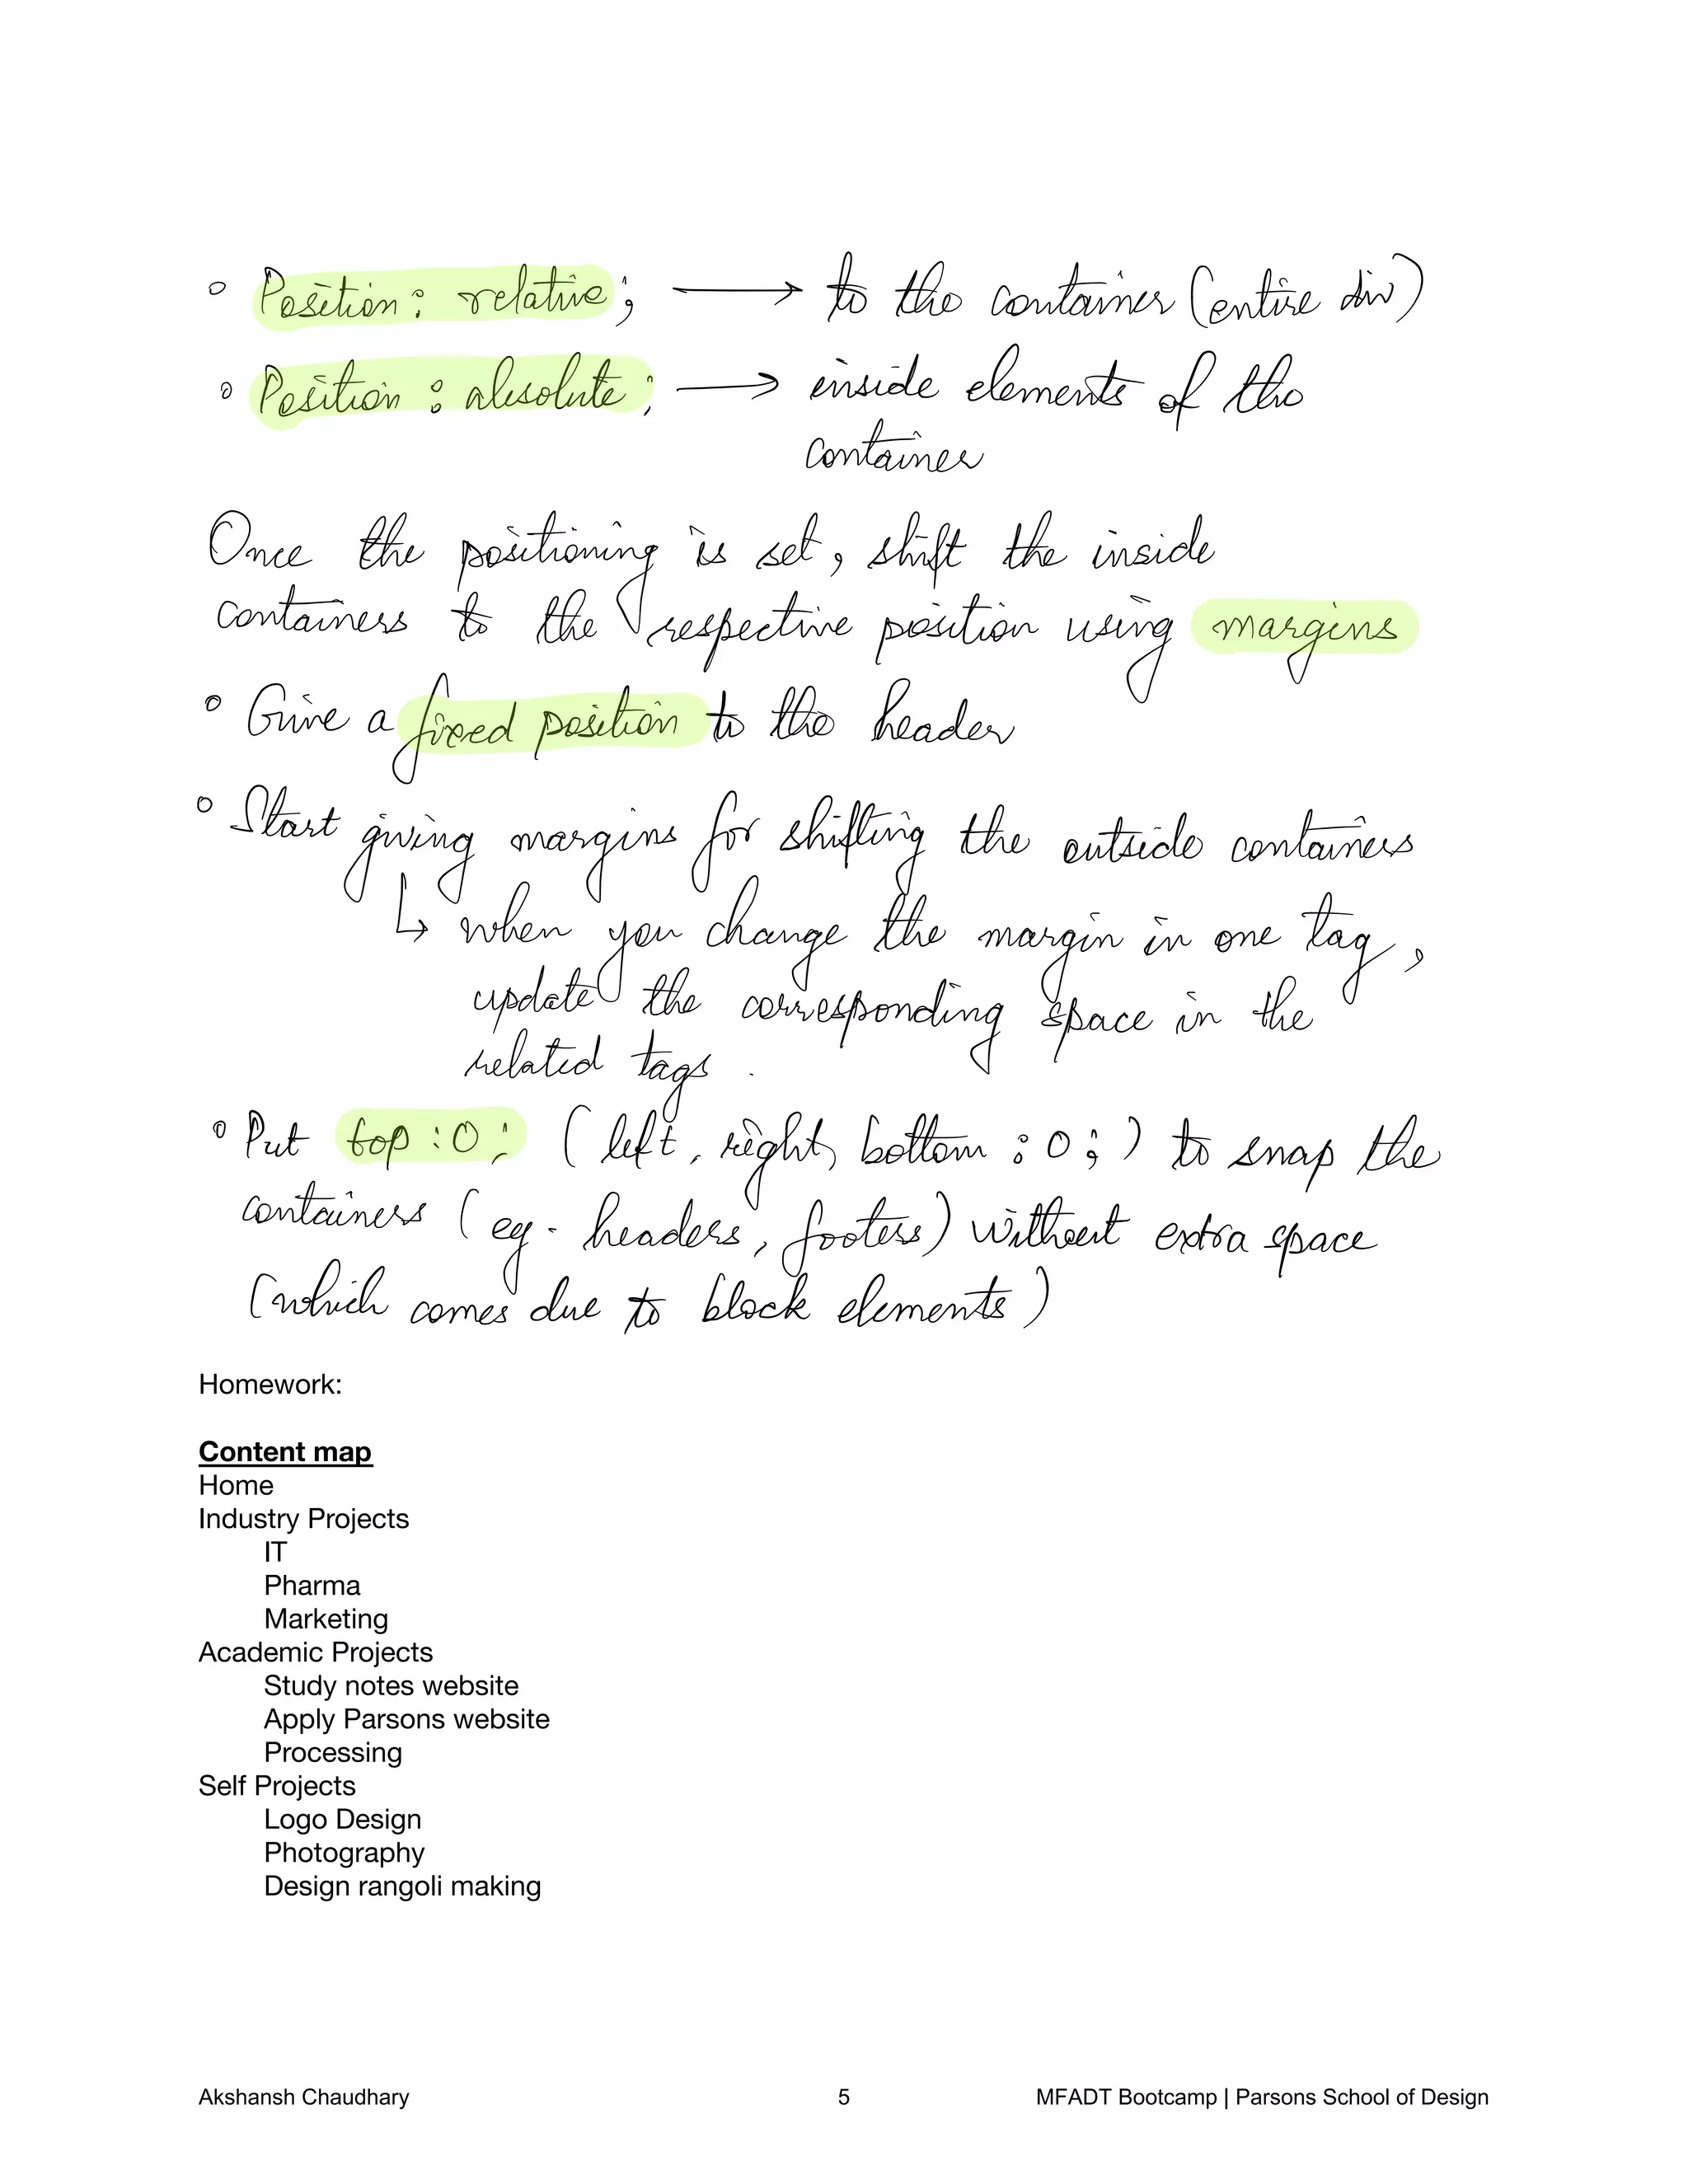 ° Position: relative; ⟶ to the container (entire div)
° Position: absolute; ⟶ inside elements of the
container
Once the positioning is set, shift the inside
containers to the respective position using margins
° Give a fixed position to the header
° Start giving margins for shifting the outside containers
↳ when you change the margin in one tag,
update the corresponding space in the
related tags.
° Put top:0; (left, right, bottom:0;) to snap the
containers (eg. headers, footers) without extra space
(which comes due to block elements)
Homework:
Content map
Home
Industry Projects
IT
Pharma
Marketing
Academic Projects
Study notes website
Apply Parsons website
Processing
Self Projects
Logo Design
Photography
Design rangoli making
Akshansh Chaudhary 5 MFADT Bootcamp | Parsons School of Design